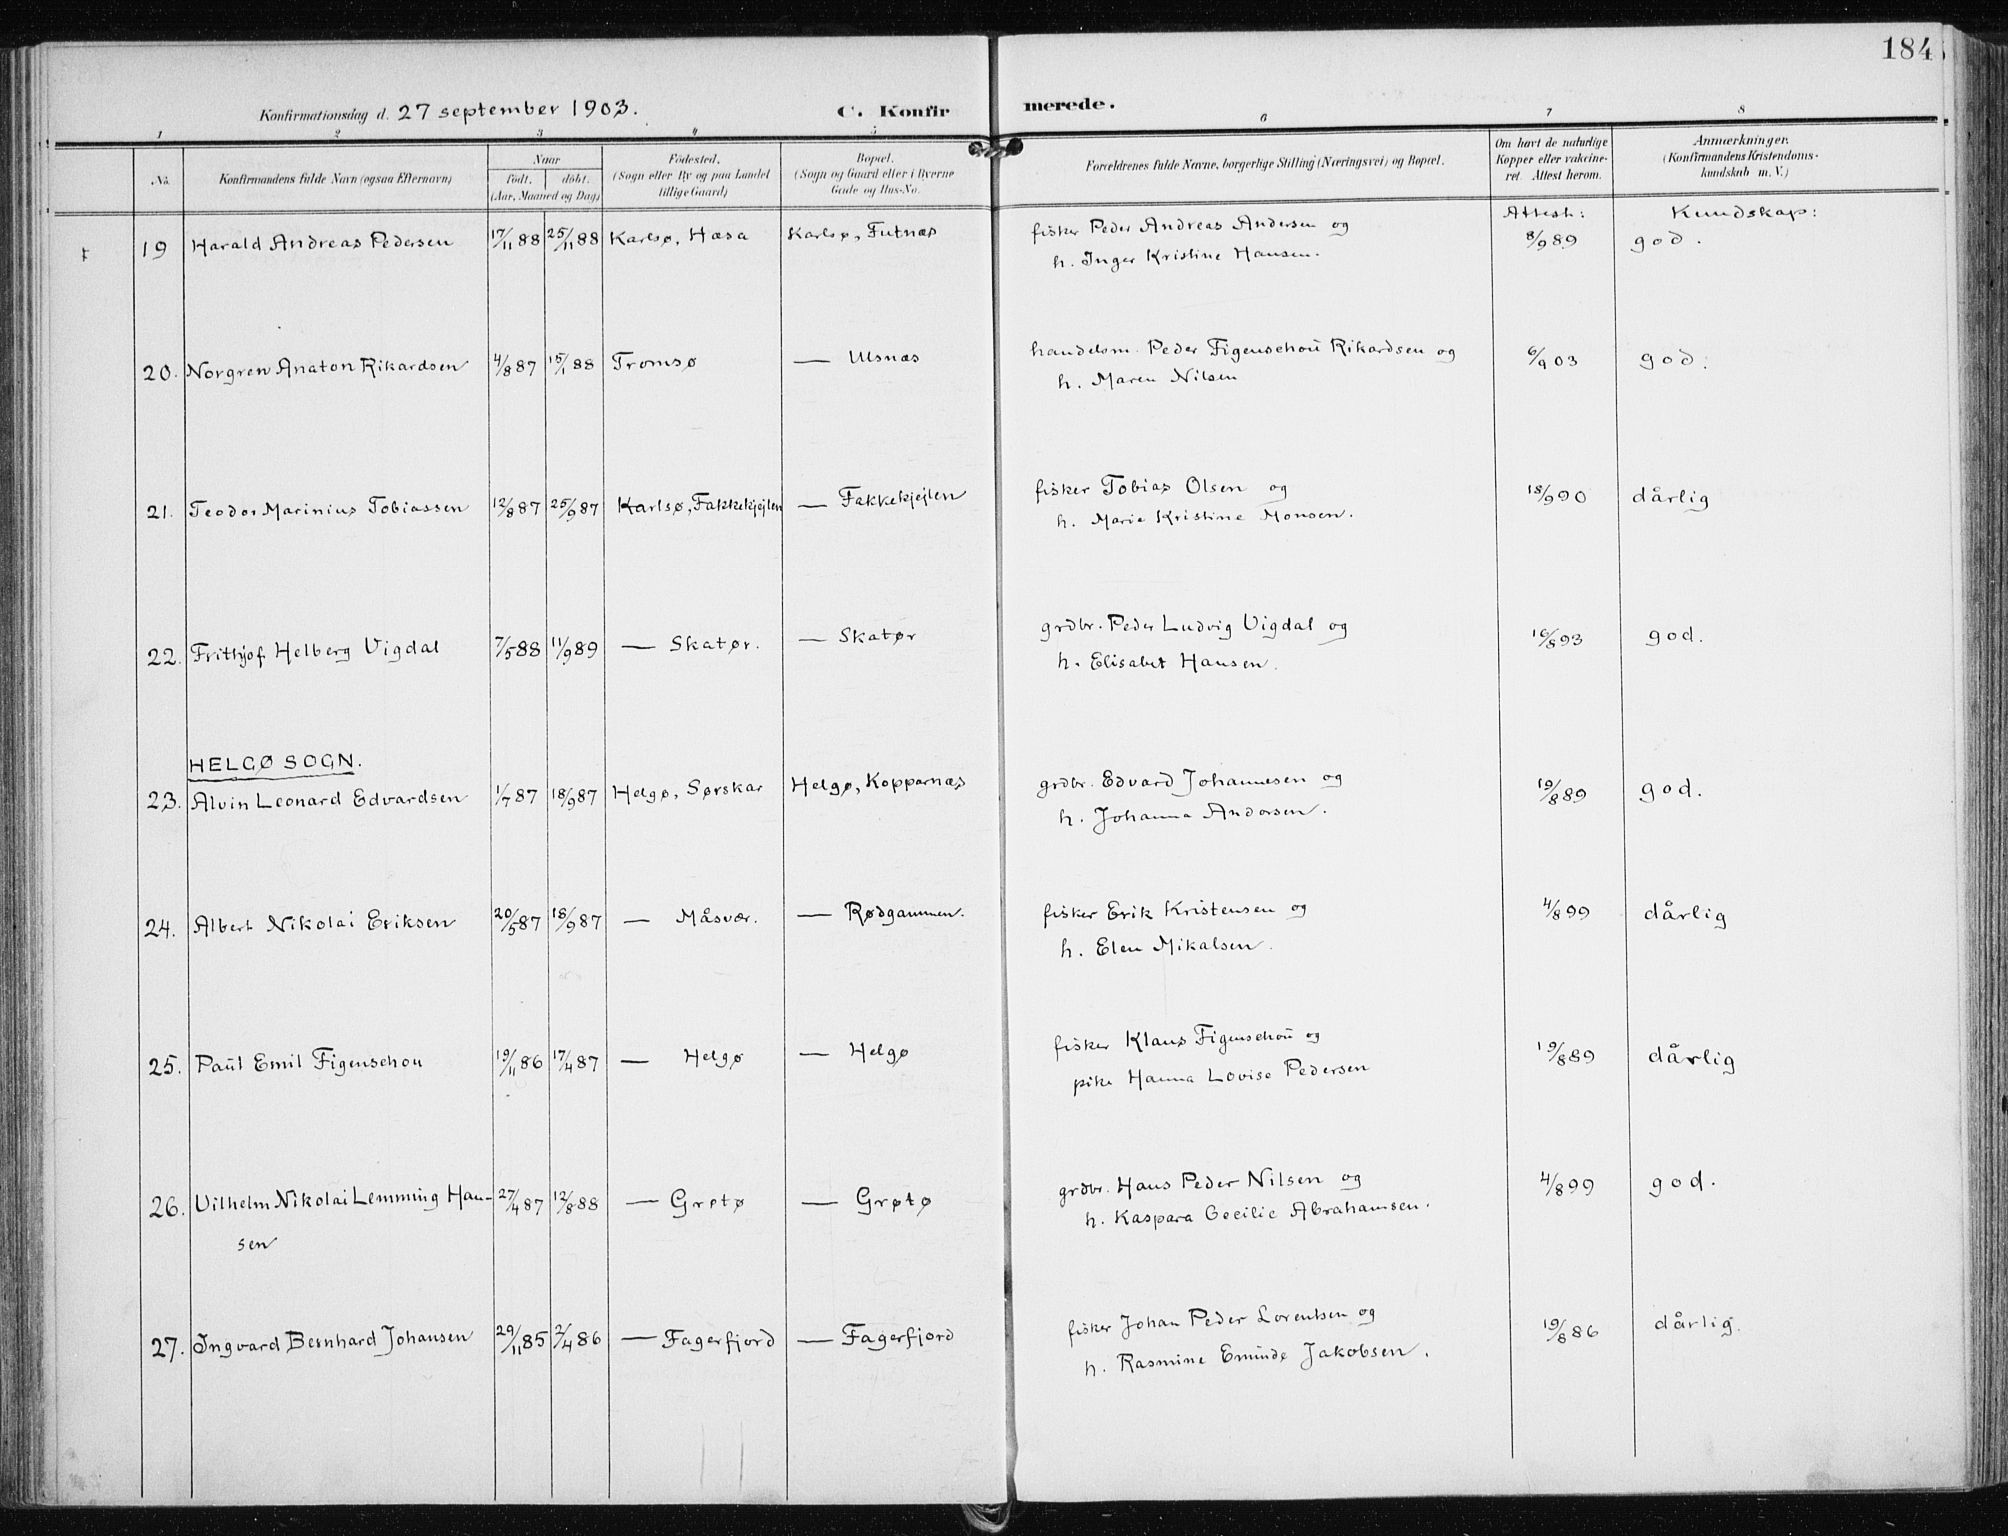 184
Konfirmationsdag d. 27 september 1903.
C. Konfirmerede.
1 2 3 4 5 6 7 8
No.
Konfirmandens fulde Navn (ogsaa Efternavn)
Naar
födt. döbt.
(Aar, Maaned og Dag)
Födested.
(Sogn eller By og paa Landet
tillige Gaard)
Bopæl.
(Sogn og Gaard eller i Byerne
Gade og Hus-No.
Forældrenes fulde Navne, borgerlige Stilling (Næringsvei) og Bopæl.
Om havt de naturlige
Kopper eller vakcine-
ret. Attest herom.
Anmærkninger.
(Konfirmandens Kristendoms-
kundskab m. V.)
Attest: Kundskap:
19 Harald Andreas Pedersen 17/11 88 25/11 88 Karlsø, Hæsa Karlsø, Futnæs fisker Peder Andreas Andersen og 8/9 89 god.
h. Inger Kristine Hansen.
20. Norgren Anaton Rikardsen 4/8 87 15/1 88 Tromsø — Ulsnæs handelsm. Peder Figenschou Rikardsen og 6/9 03 god.
h. Maren Nilsen
21. Teodor Marinius Tobiassen 12/8 87 25/9 87 Karlsø, Fakkekjejlen — Fakkekjejlen fisker Tobias Olsen og 18/9 90 dårlig
h. Marie Kristine Monsen.
22. Frithjof Helberg Vigdal 7/5 88 11/9 89 — Skatør. — Skatør grdbr. Peder Ludvig Vigdal og 16/8 93 god.
h. Elisabet Hansen.
HELGØ SOGN.
23. Alvin Leonard Edvardsen 1/7 87 18/9 87 Helgø, Sørskar Helgø, Kopparnæs grdbr. Edvard Johannesen og 19/8 89 god.
h. Johanna Andersen.
24. Albert Nikolai Eriksen 20/5 87 18/9 87 — Måsvær. — Rødgammen. fisker Erik Kristensen og 4/8 99 dårlig
h. Elen Mikalsen.
25. Paul Emil Figenschou 19/11 86 17/4 87 — Helgø — Helgø fisker Klaus Figenschou og 19/8 89 dårlig
pike Hanna Lovise Pedersen
26. Vilhelm Nikolai Lemming Han- 27/4 87 12/8 88 — Grøtø — Grøtø grdbr. Hans Peder Nilsen og 4/8 99 god.
sen h. Kaspara Cecilie Abrahamsen.
27. Ingvard Bernhard Johansen 29/11 85 2/4 86 — Fagerfjord — Fagerfjord fisker Johan Peder Lorentsen og 19/8 86 dårlig.
h. Rasmine Eminde Jakobsen.